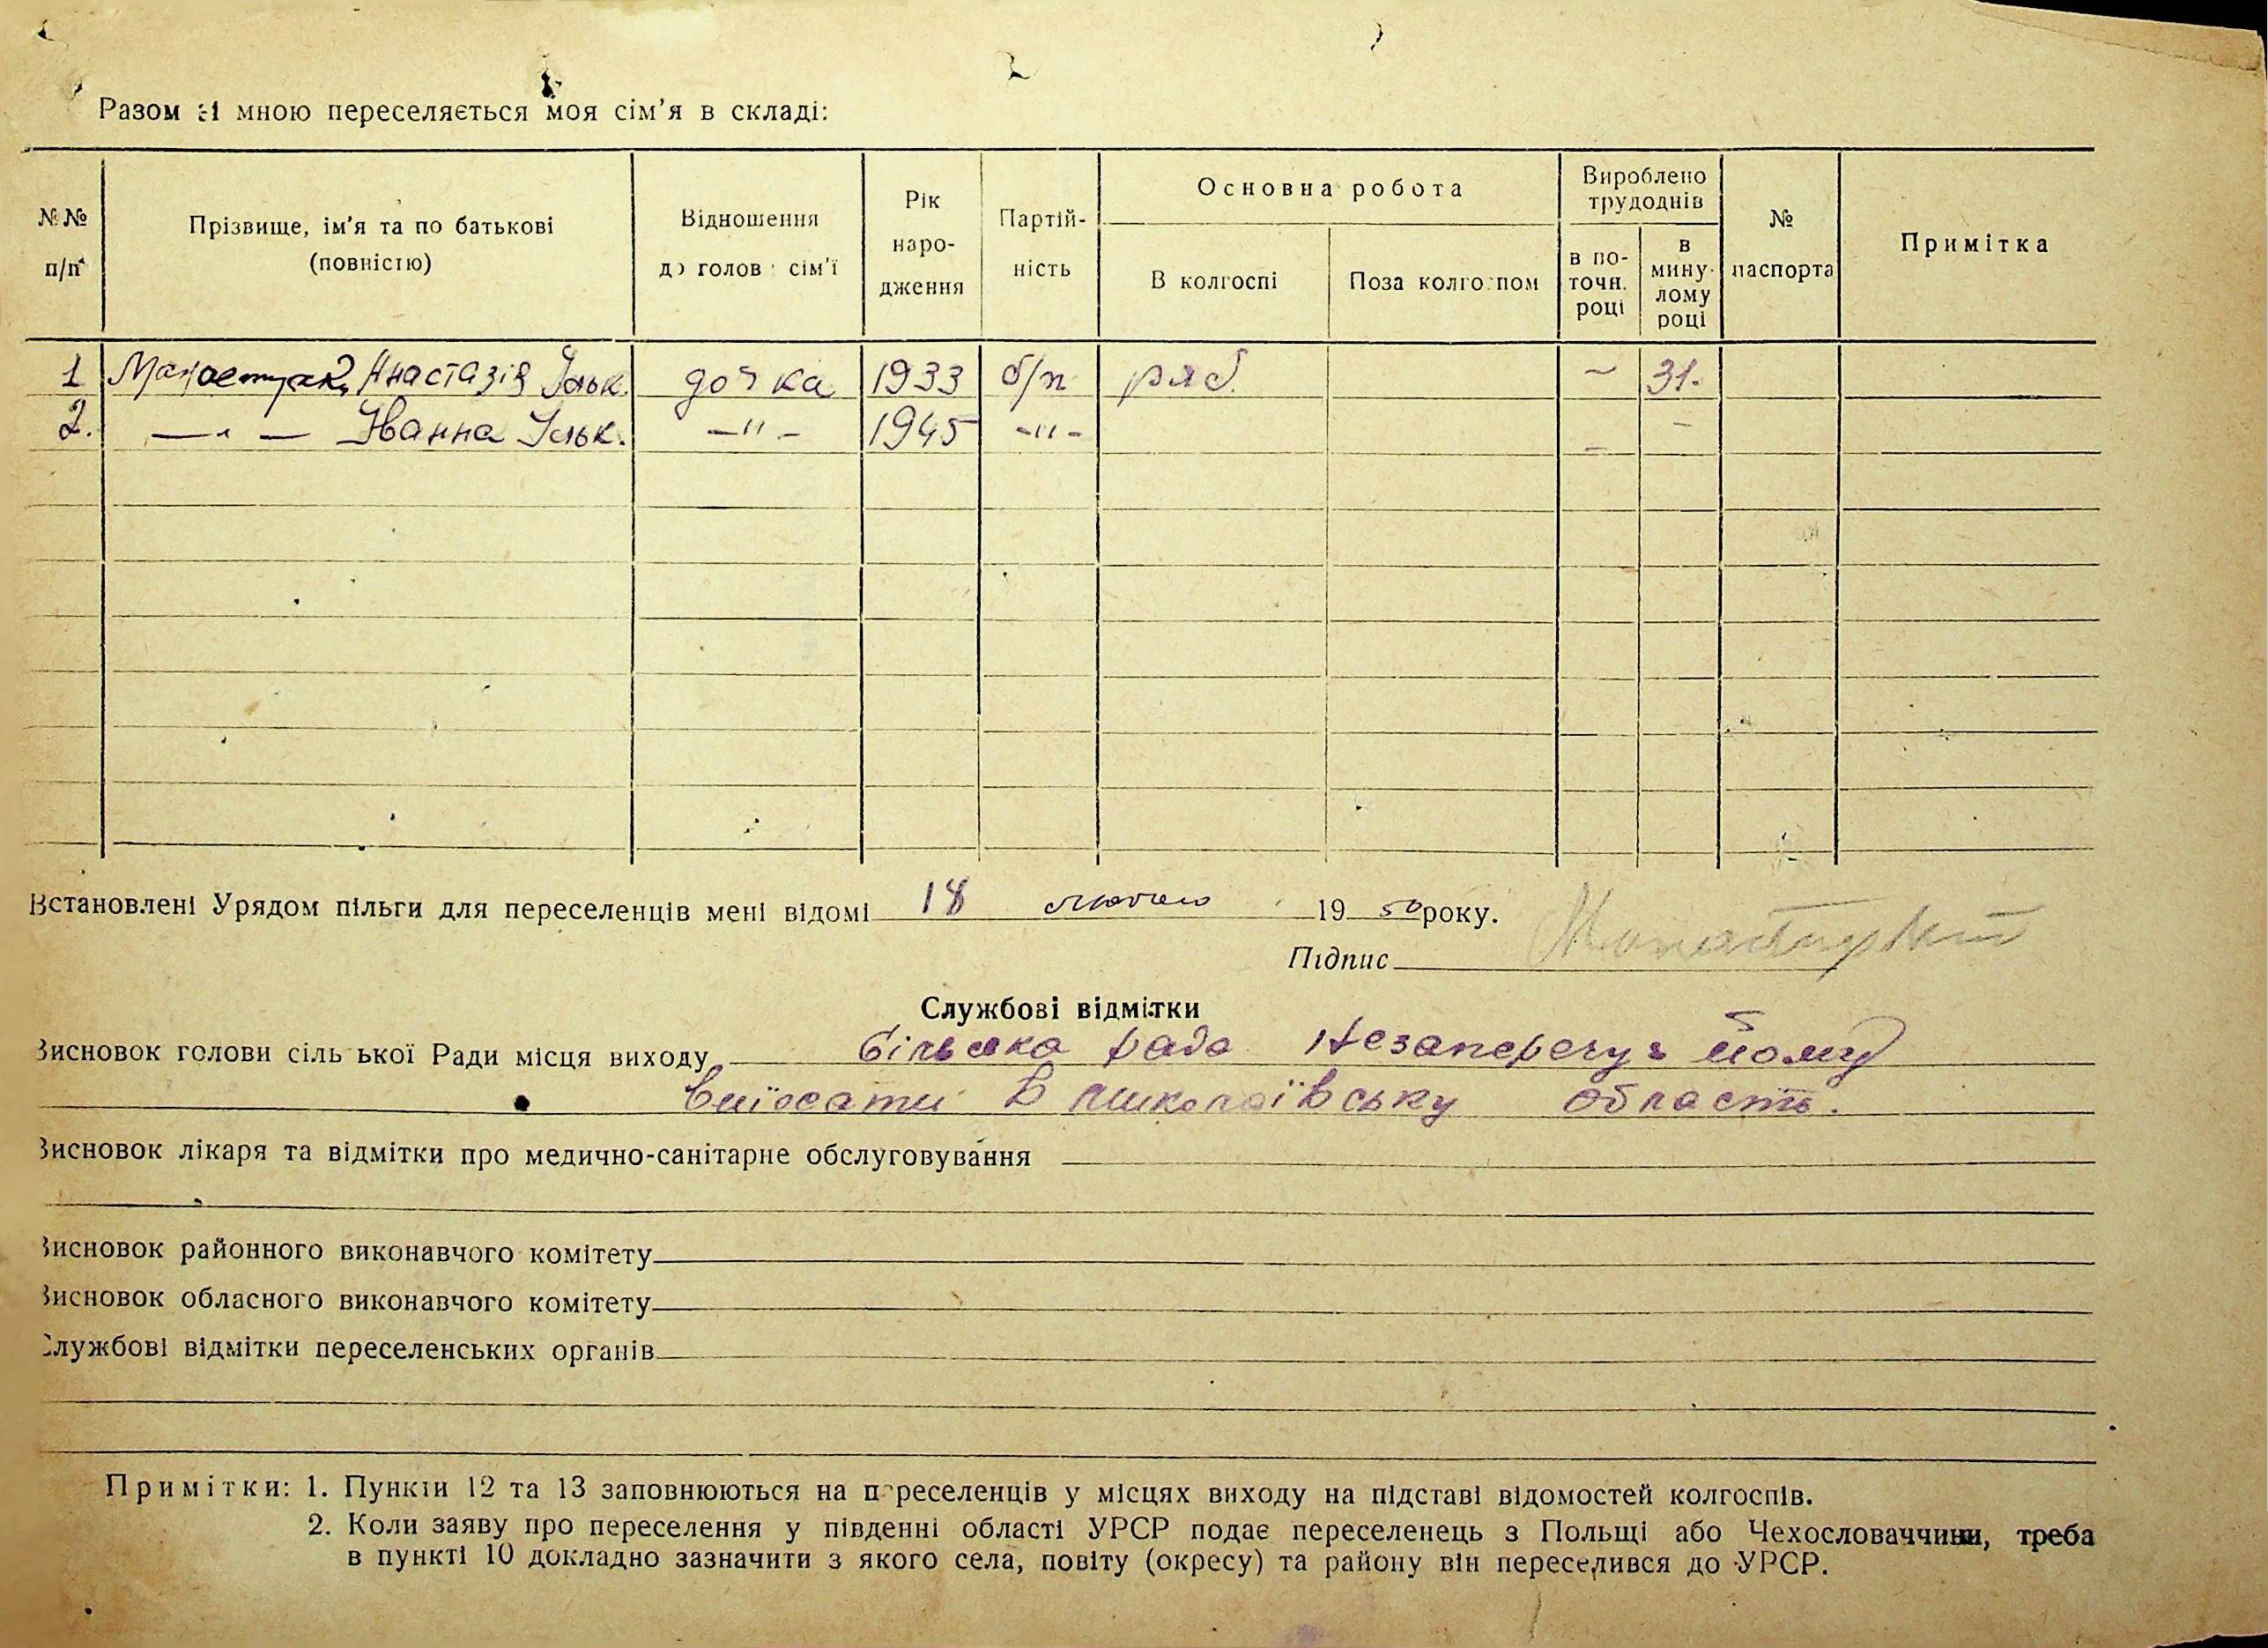 Разом зі мною переселяється моя сім'я в складі:
№№ п/п
Прізвище, ім'я та по батькові (повністю)
Відношення до голови сім'ї
Рік народження
Партійність
Основна робота
В колгоспі
Поза колгоспом
Вироблено трудоднів
в поточн. році
в минулому році
№ паспорта
Примітка
1 Анастазія Ільк. дочка 1933 б/п ряд. ~ 31.
2. —"— Іванна Ільк. —"— 1945 —"— – –
Встановлені Урядом пільги для переселенців мені відомі 18 лютого 1950 року.
Підпис
Службові відмітки
Висновок голови сільської Ради місця виходу сільська рада незаперечує йому
виїхати в Миколаївську область.
Висновок лікаря та відмітки про медично-санітарне обслуговування
Висновок районного виконавчого комітету
Висновок обласного виконавчого комітету
Службові відмітки переселенських органів
Примітки: 1. Пункти 12 та 13 заповнюються на переселенців у місцях виходу на підставі відомостей колгоспів.
2. Коли заяву про переселення у південні області УРСР подає переселенець з Польщі або Чехословаччини, треба
в пункті 10 докладно зазначити з якого села, повіту (окресу) та району він переселився до УРСР.